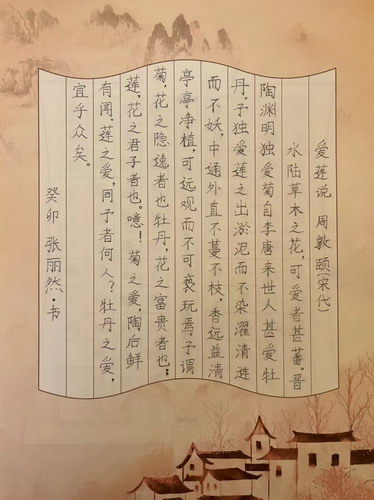 爱莲说 周敦颐(宋代)
水陆草木之花,可爱者甚蕃。晋
陶渊明独爱菊自李唐来世人甚爱牡
丹。予独爱莲之出淤泥而不染濯清涟
而不妖,中通外直不蔓不枝,香远益清
亭亭净植,可远观而不可亵玩焉予谓
菊,花之隐逸者也牡丹,花之富贵者也;
莲,花之君子者也。噫!菊之爱,陶后鲜
有闻。莲之爱,同予者何人?牡丹之爱,
宜乎众矣。
癸卯 张丽然·书